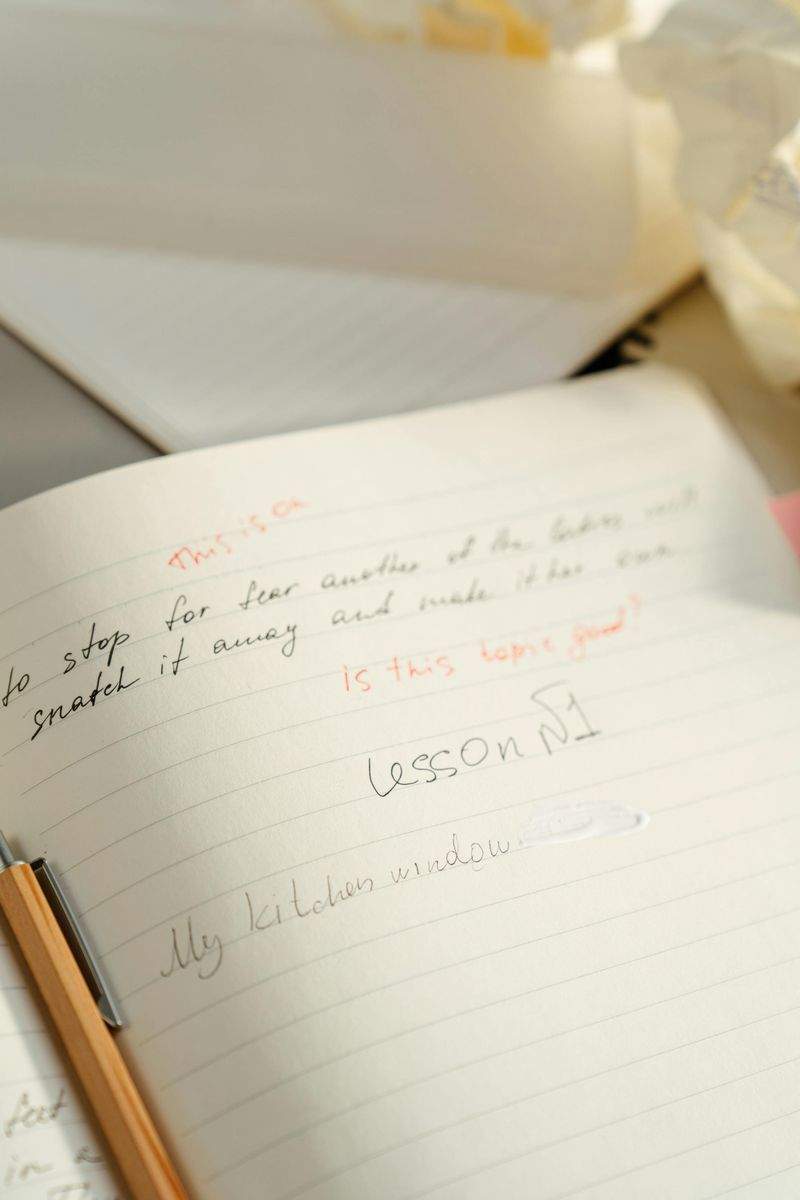 This is on
to stop for fear another of the ladies will
snatch it away and make it her own
is this topic good?
Lesson №1
My kitchen window
feet
in a